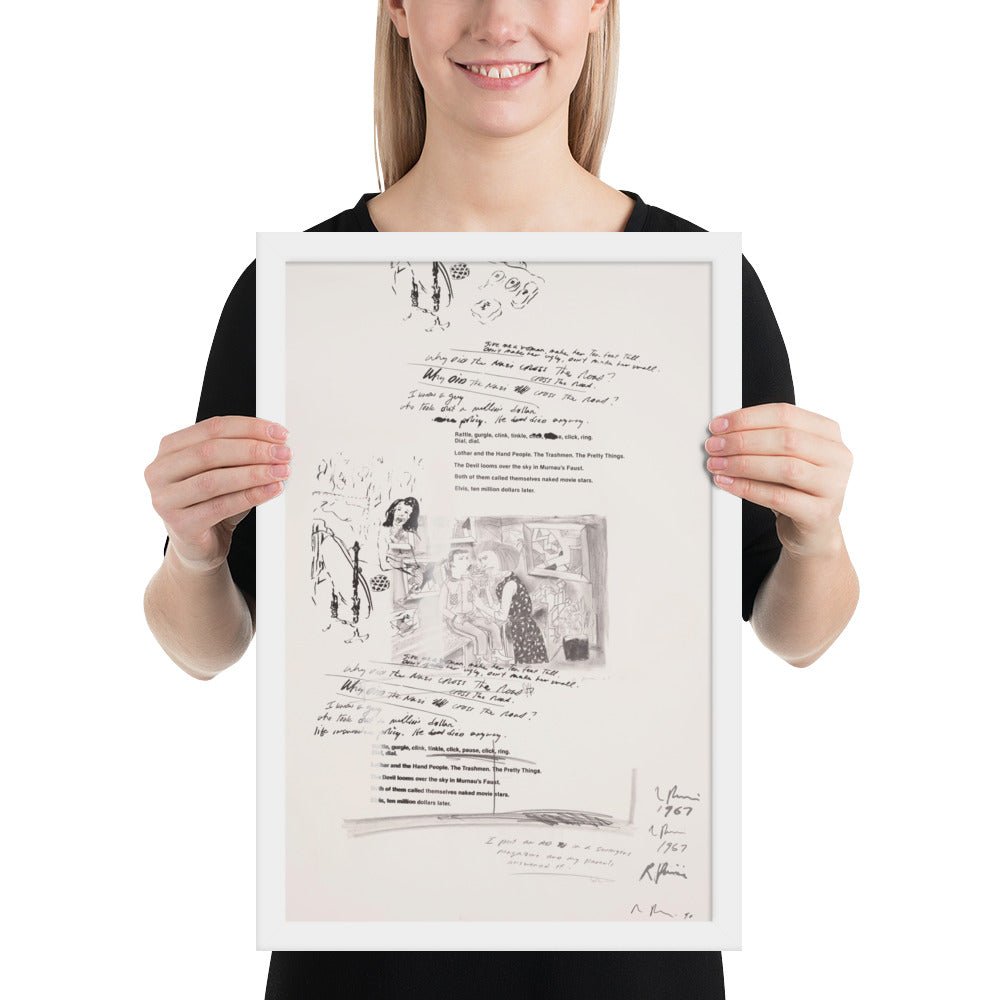 Give me a woman, make her Ten feet Tall
Don't make her ugly, don't make her small.
Why Did The Nazi CROSS The Road?
CROSS The Road.
Why DID The Nazi CROSS The Road?
I knew a guy
who Took out a million dollar
policy. He died anyway.
Rattle, gurgle, clink, tinkle, click, click, ring.
Dial, dial.
Lothar and the Hand People. The Trashmen. The Pretty Things.
The Devil looms over the sky in Murnau's Faust.
Both of them called themselves naked movie stars.
Elvis, ten million dollars later.
Give me a woman, make her Ten feet Tall
Don't make her ugly, don't make her small.
Why Did The Nazi CROSS The Road
CROSS The Road.
Why DID The Nazi CROSS The Road?
I knew a guy
who Took out a million dollar
life insurance policy. He died anyway.
Rattle, gurgle, clink, tinkle, click, pause, click, ring.
Dial, dial.
Lothar and the Hand People. The Trashmen. The Pretty Things.
The Devil looms over the sky in Murnau's Faust.
Both of them called themselves naked movie stars.
Elvis, ten million dollars later.
1967
1967
I put an ad in a swingers
magazine and my parents
answered it.
R Prince